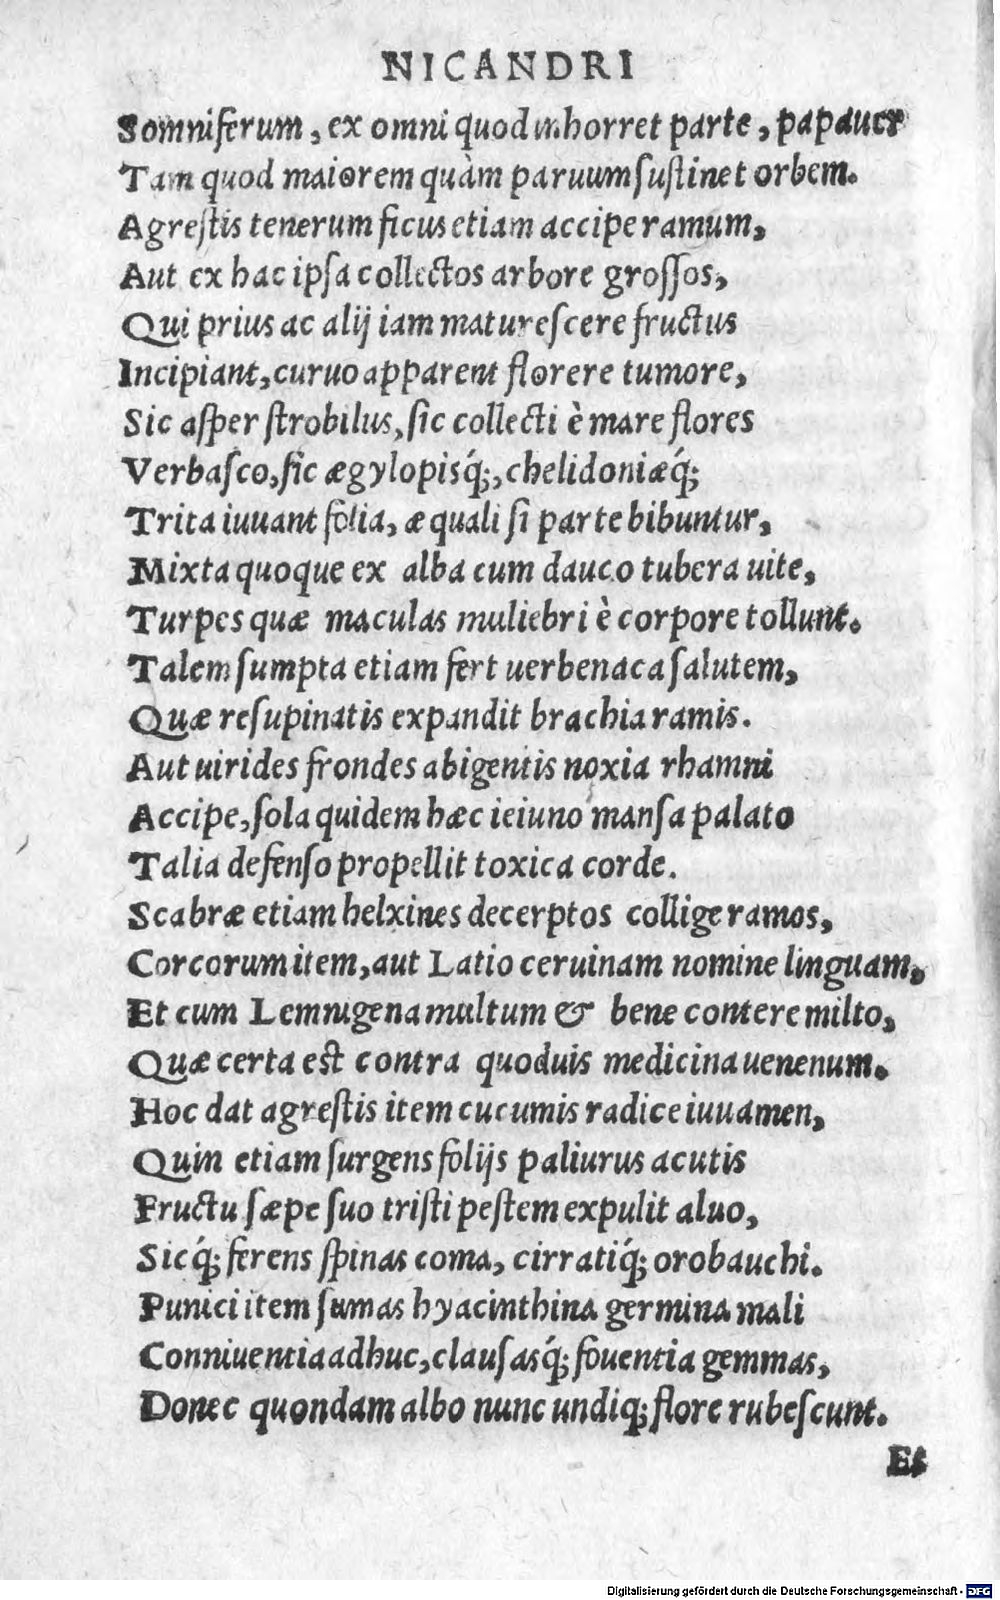 NICANDRI
Somniferum, ex omni quod inhorret parte, papauer
Tam quod maiorem quàm paruum ſuſtinet orbem.
Agreſtis tenerum ficus etiam accipe ramum,
Aut ex hac ipſa collectos arbore groſſos,
Qui prius ac alij iam matureſcere fructus
Incipiant, curuo apparent florere tumore,
Sic aſper ſtrobilus, ſic collecti è mare flores
Verbaſco, ſic ægylopisq́;, chelidoniæq́;
Trita iuuant folia, æquali ſi parte bibuntur,
Mixta quoque ex alba cum dauco tubera uite,
Turpes quæ maculas muliebri è corpore tollunt.
Talem ſumpta etiam fert uerbenaca ſalutem,
Quæ reſupinatis expandit brachia ramis.
Aut uirides frondes abigentis noxia rhamni
Accipe, ſola quidem hæc ieiuno manſa palato
Talia defenſo propellit toxica corde.
Scabræ etiam helxines decerptos collige ramos,
Corcorum item, aut Latio ceruinam nomine linguam,
Et cum Lemnigena multum & bene contere milto,
Quæ certa est contra quoduis medicina uenenum.
Hoc dat agreſtis item cucumis radice iuuamen,
Quin etiam ſurgens folijs paliurus acutis
Fructu ſæpe ſuo triſti peſtem expulit aluo,
Sicq́; ferens ſpinas coma, cirratiq́; orobauchi.
Punici item ſumas hyacinthina germina mali
Conniuentia adhuc, clauſasq́; fouentia gemmas,
Donec quondam albo nunc undiq; flore rubeſcunt.
Eſ
Digitalisierung gefördert durch die Deutsche Forschungsgemeinschaft - DFG